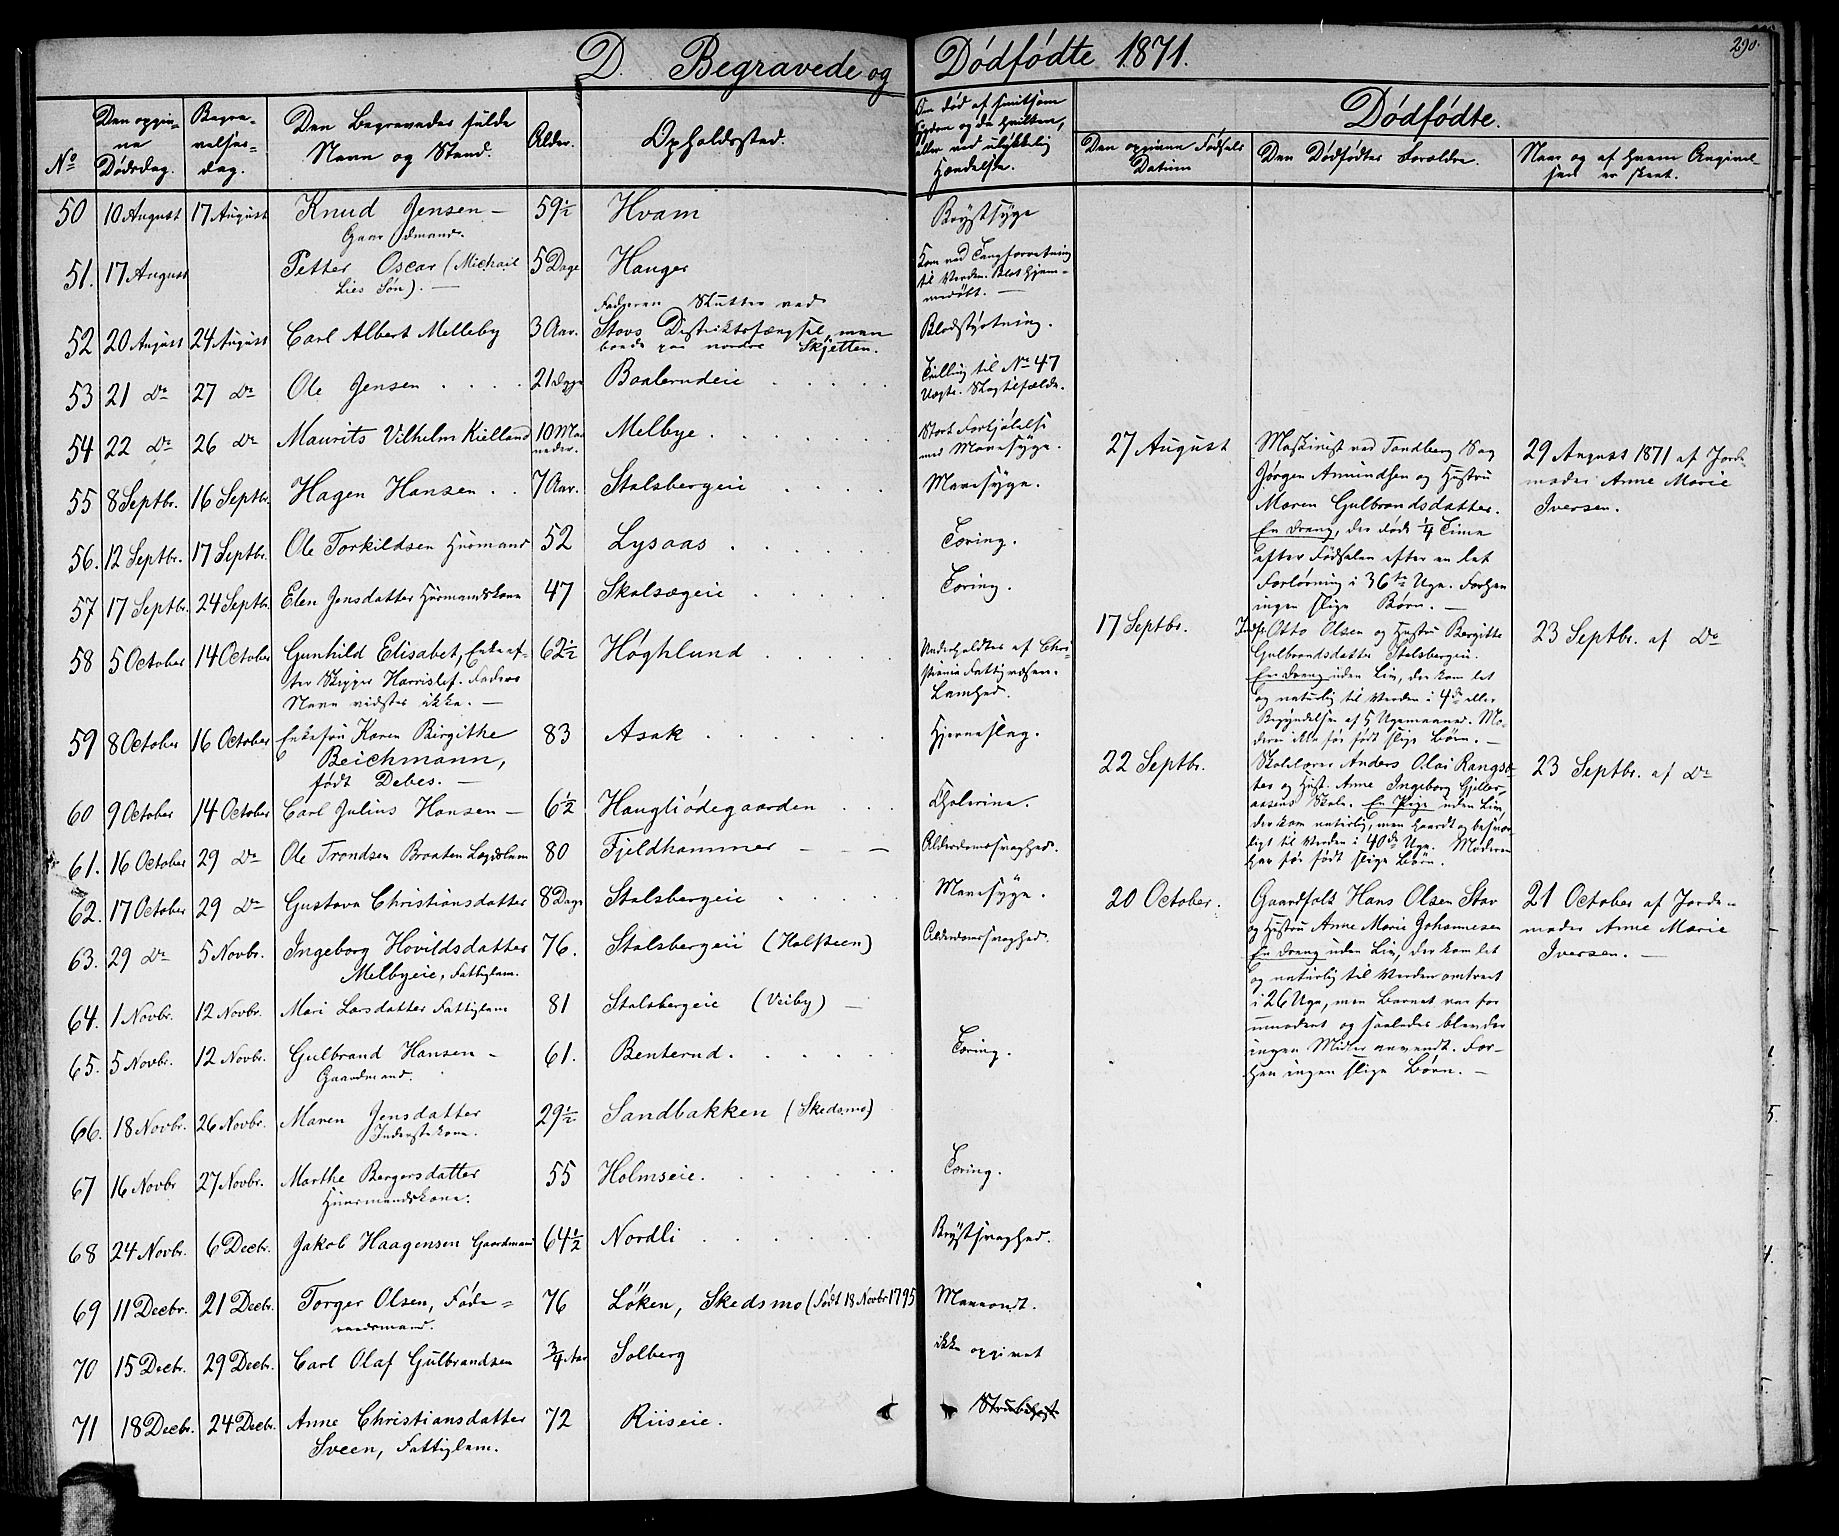 D. Begravede og Dødfødte 1871.
290.
No
Den opgivne Dødsdag.
Begravelsesdag.
Den Begravedes fulde Navn og Stand.
Alder.
Opholdssted.
Om død af smitsom Sygdom og da hvilken, eller ved ulykkelig Hændelse.
Dødfødte.
Den opgivne Fødsels Datum
Den Dødfødtes Forældre.
Naar og af hvem Angivelsen er skeet.
50 10 August 17 August Knud Jensen – Gaardmand. 59½ Hvam Brystsyge
51. 17 August Petter Oscar (Michael Lies Søn). – 5 Dage Hauger Kom ved Tangforretning til Verden. Blot hjemmedøbt. –
52 20 August 24 August Carl Albert Melleby 3 Aar. Faderen Slutter ved Stavs Distriktsfængsel, men boede paa nordre Skjetten. Blodstyrtning.
53 21 Do 27 Do Ole Jensen 21 Dage Baalerudeie Tvilling til No 47
54 22 Do 26 Do Maurits Vilhelm Kielland 10 Maaneder. Melbye Stærk Forkjølelse med Mavesyge.
55 8 Septbr. 16 Septbr. Hagen Hansen 7 Aar. Stalsbergeie Mavesyge.
56. 12 Septbr. 17 Septbr. Ole Torkildsen Huusmand 52 Lysaas Tæring.
57 17 Septbr. 24 Septbr. Elen Jensdatter Huusmandskone 47 Skalsægeie Tæring.
58 5 October 14 October Gunhild Elisabet, Enke efter Skipper Harrislef. Faderens Navn vidstes ikke. – 62½ Høghlund Underholdtes af Christiania Fattigvæsen. Lamhed.
59 8 October 16 October Enkefru Karen Birgithe Beichmann, født Debes. – 83 Asak Hjerneslag.
60 9 October 14 October Carl Julius Hansen – 6½ Haugliødegaarden Cholerine.
61. 16 October 29 Do Ole Trondsen Braaten Lægdslem 80 Fjeldhammer Alderdomssvaghed.
62. 17 October 29 Do Gustava Christiansdatter 8 Dage Stalsbergeie Mavesyge.
63. 29 Do 5 Novbr. Ingeborg Hovildsdatter Melbyeie, Fattiglem. 76. Stalsbergeie (Holsteen) Alderdomssvaghed.
64. 1 Novbr. 12 Novbr. Mari Larsdatter Fattiglem 81 Stalsbergeie (Veiby) –
65. 5 Novbr. 12 Novbr. Gulbrand Hansen – Gaardmand. 61. Benterud. Tæring.
66. 18 Novbr. 26 Novbr. Maren Jensdatter Inderstekone. 29½ Sandbakken (Skedsmo)
67 16 Novbr 27 Novbr. Marthe Bergersdatter Huusmandskone. 55 Holmseie. Tæring.
68 24 Novbr. 6 Decbr. Jakob Haagensen Gaardmand 64½ Nordli Brystsvaghed.
69 11 Decbr. 21 Decbr. Torger Olsen, Føderaadsmand. 76 Løken, Skedsmo (født 18 Novbr 1795 Maveondt.
70 15 Decbr. 29 Decbr. Carl Olaf Gulbrandsen ¾ Aar Solberg ikke opgivet
71 18 Decbr. 24 Decbr. Anne Christiansdatter Sveen, Fattiglem. 72 Riiseie. Strubehoste
27 August
Maskinist ved Sandberg Sag
Jørgen Amundsen og Hustru
Maren Gulbrandsdatter.
En Dreng, der døde ¼ Time
efter Fødselen efter en let
Forløsning i 36te Uge. Forhen
ingen slige Børn. –
29 August 1871 af Jordemoder Anne Marie Iversen.
17 Septbr.
Inds. Otto Olsen og Hustru Bergitte
Gulbrandsdatter Stalsbergeie.
En Dreng uden Liv, der kom let
og naturlig til Verden i 4de eller
Begyndelsen af 5 Ugemaaned. Moderen ikke før født slige Børn. –
23 Septbr. af Do
22 Septbr.
Skolelærer Anders Olai Rangsæter og Hust. Anne Ingeborg Gjelleraasens Skole. En Pige uden Liv,
der kom naturlig, men haardt og besværligt til Verden i 40de Uge. Moderen
har før født slige Børn.
23 Septbr. af Do
20 October.
Gaardfolk Hans Olsen Stav
og Hustru Anne Marie Johannesen
En Dreng uden Liv, der kom let
og naturlig til Verden omtrent
i 26 Uge, men Barnet var for
umodent og saaledes bleve der
ingen Midler anvendt. Forhen ingen slige Børn. –
21 October af Jordemoder Anne Marie Iversen. –